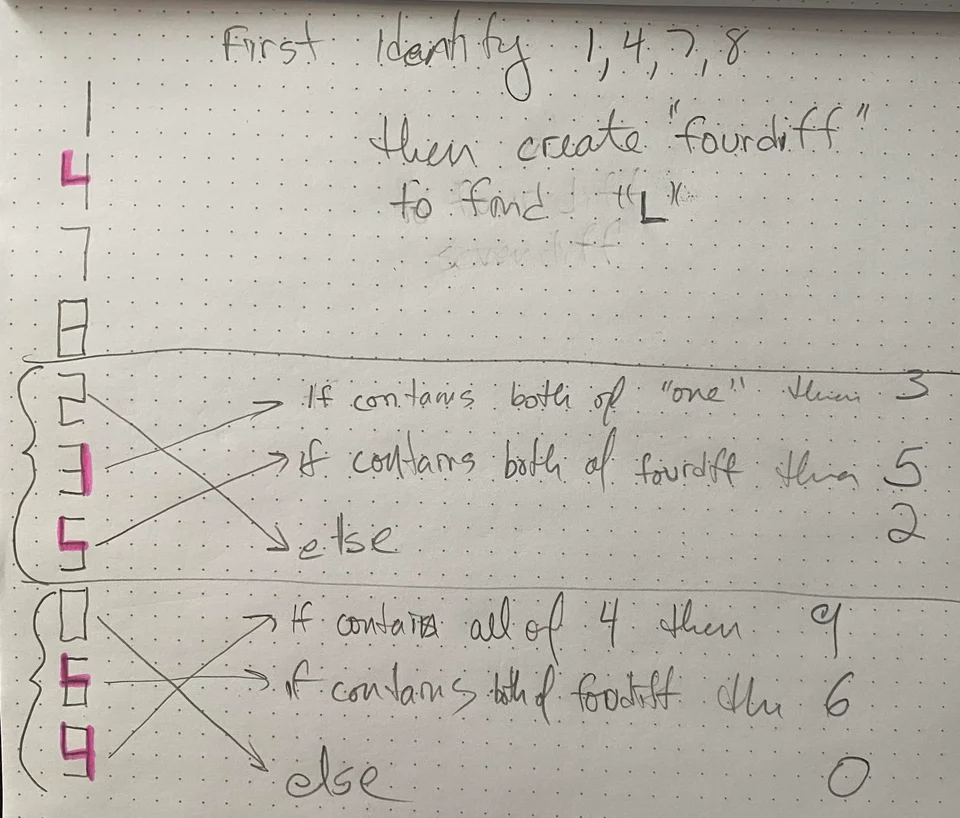 First Identify 1, 4, 7, 8
1
then create "fourdiff"
4
to find "L"
7
sevendiff
8
2 If contains both of "one" then 3
3 if contains both of fourdiff then 5
5 else 2
0 If contains all of 4 then 9
6 if contains both of foudiff the 6
9 else 0